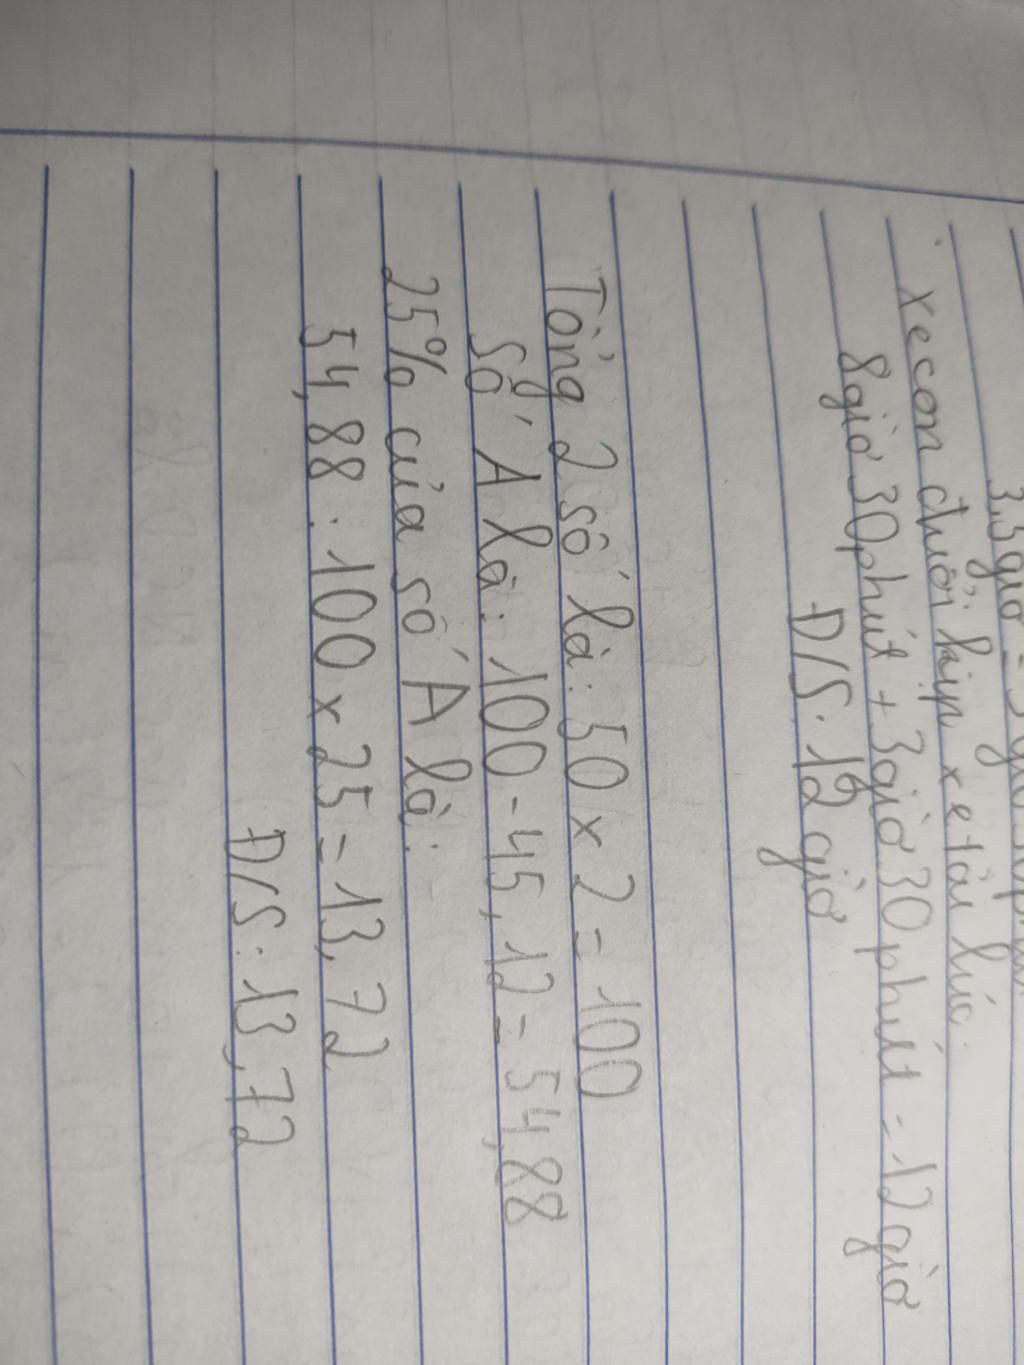 3,5 giờ = 3 giờ 30 phút
xe con đuổi kịp xe tải lúc
8 giờ 30 phút + 3 giờ 30 phút = 12 giờ
Đ/S: 12 giờ
Tổng 2 số là: 50 x 2 = 100
Số A là: 100 - 45,12 = 54,88
25% của số A là:
54,88 : 100 x 25 = 13,72
Đ/S: 13,72